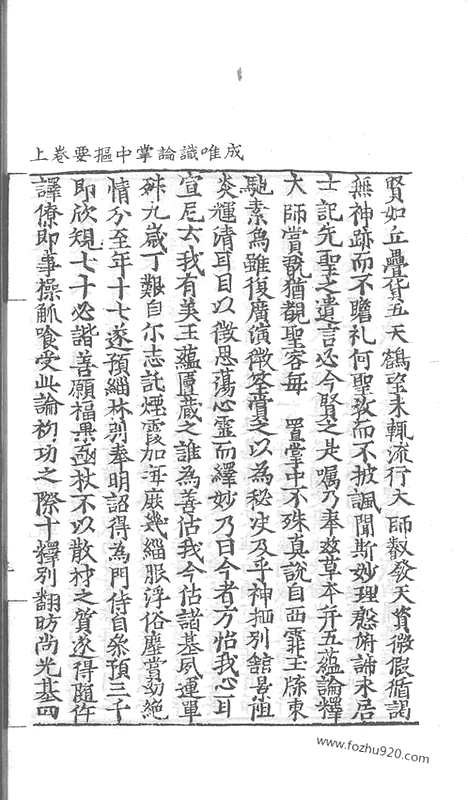 成唯識論掌中樞要卷上
賢如丘疊貨五天鶴望未輒流行大師叡發天資徵假循謁
無神跡而不瞻礼何聖教而不披諷聞斯妙理慇俯諦求居
士記先聖之遺言必今賢之是囑乃奉玆草本并五蘊論釋
大師賞翫猶覩聖容每 置掌中不殊真說自西霏玉牒東
馳素為雖復廣演微筌賞之以為秘决及乎神栖別舘景徂
炎輝清耳目以徵思蕩心靈而繹妙乃曰今者方怡我心耳
宣尼云我有美玉蘊匵藏之誰為善估我今估諸基夙運單
舛九歲丁艱自尒志託煙霞加每庶幾緇服浮俗塵賞㓜絕
情分至年十七遂預緇林別奉明詔得為門侍自參預三千
即欣規七十必諧善願福果函杖不以散材之質遂得隨伜
譯僚即事操觚飡受此論初功之際十釋別翻昉尚光基四
www.fozhu920.com